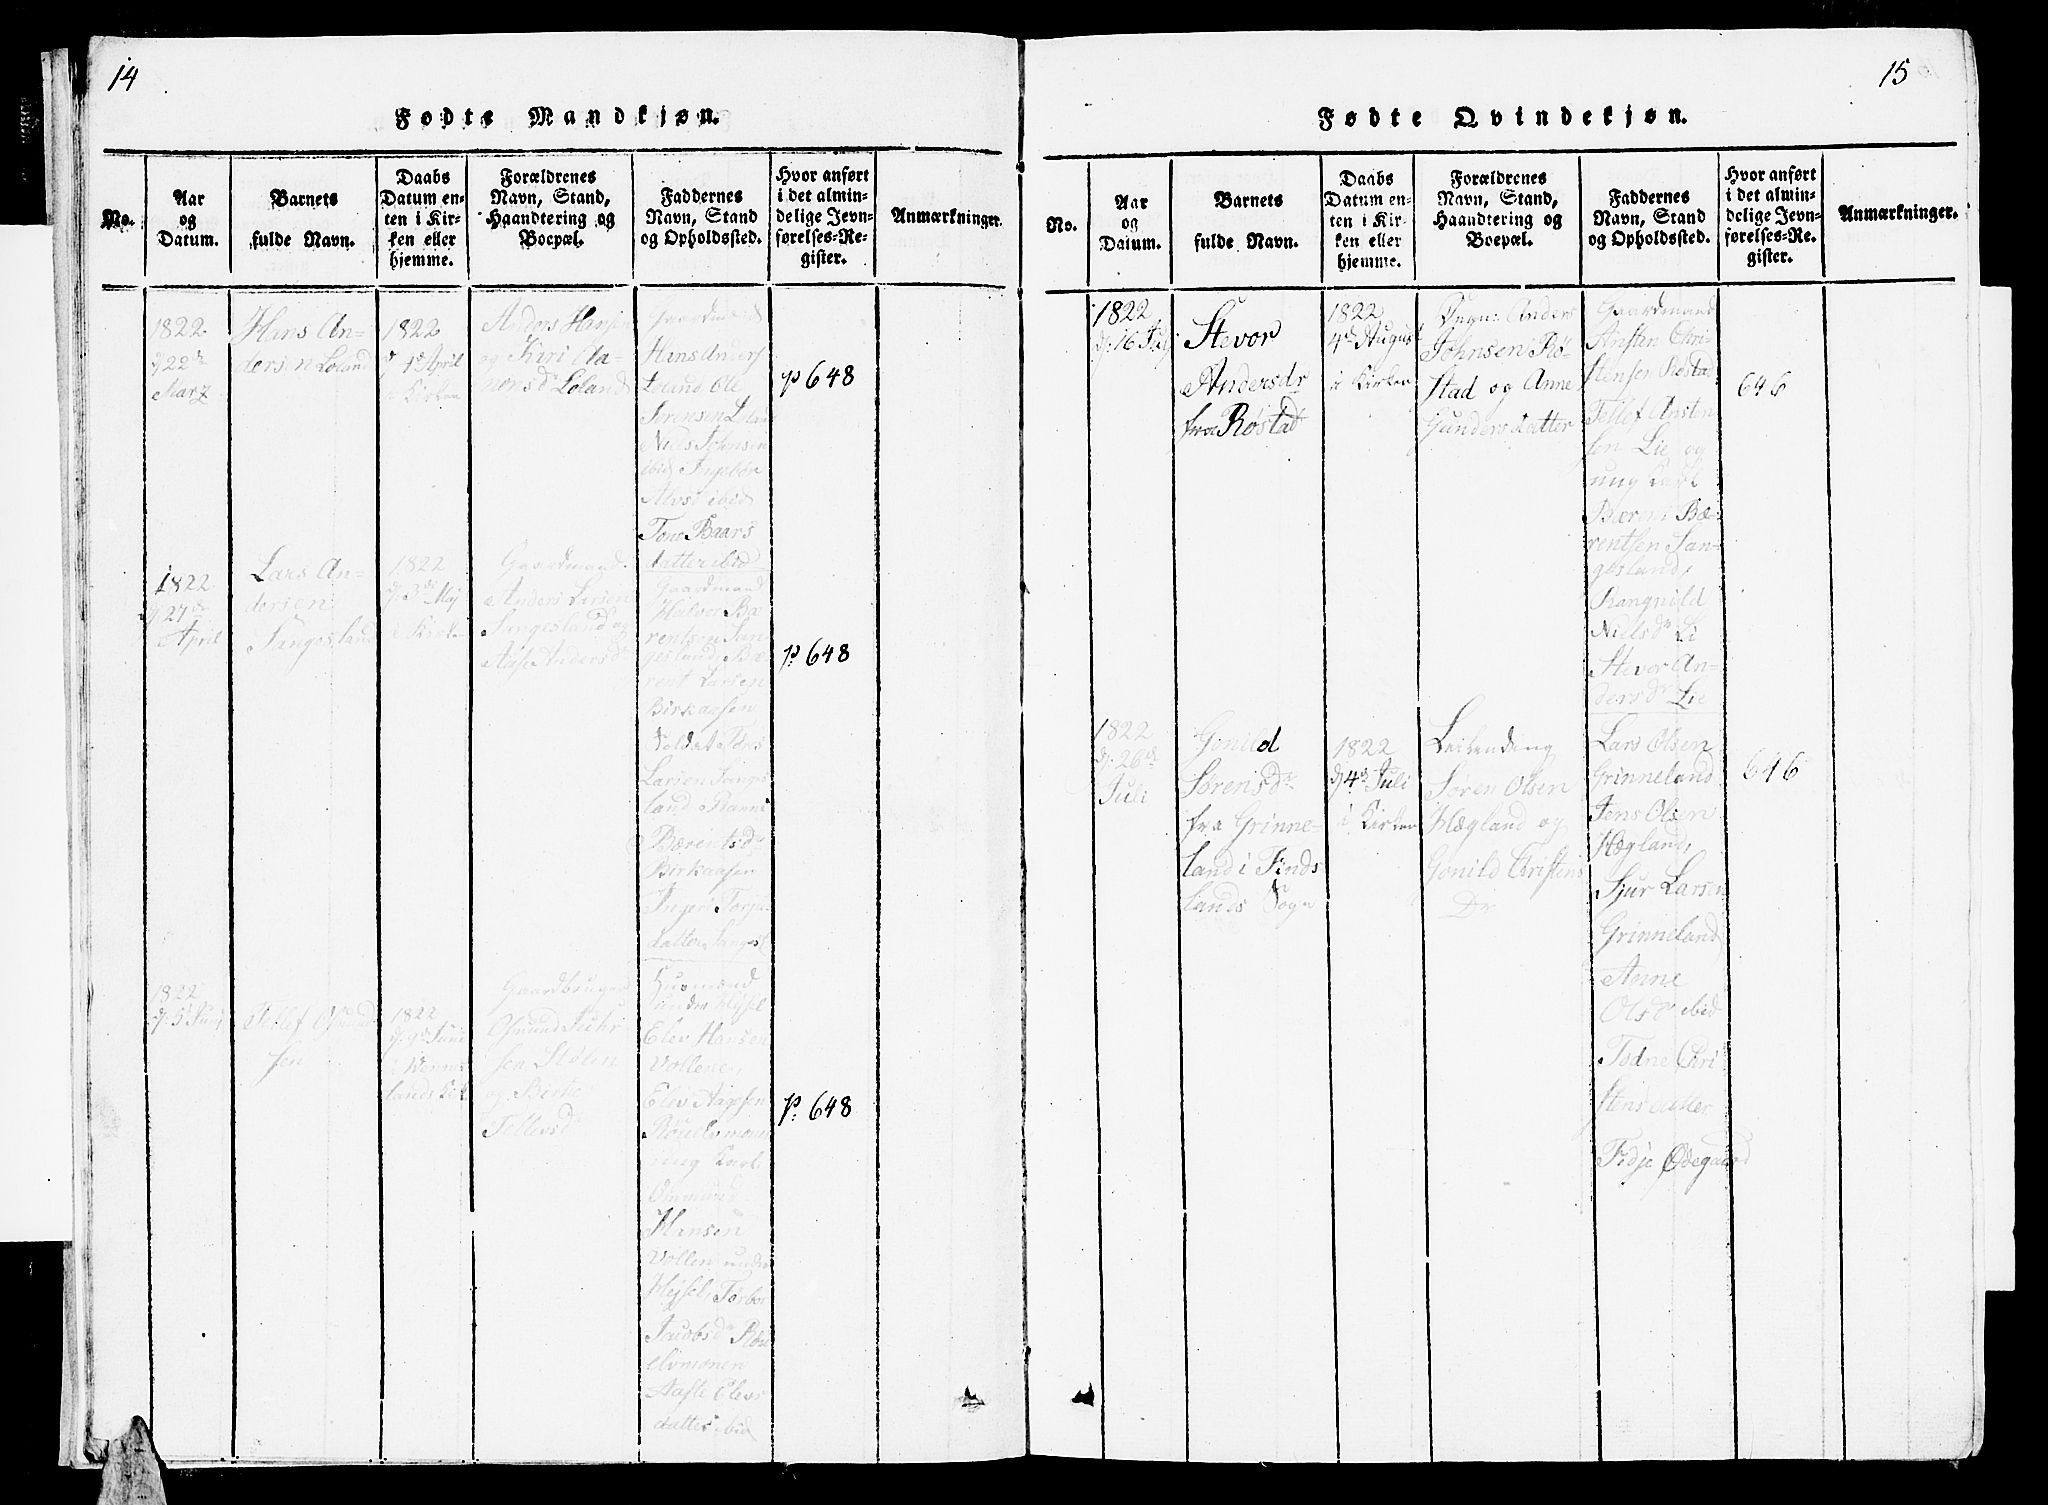 14
Fødte Mandkjøn.
No.
Aar
og
Datum.
Barnets
fulde Navn.
Daabs
Datum en-
ten i Kir-
ken eller
hjemme.
Forældrenes
Navn, Stand,
Haandtering og
Boepæl.
Faddernes
Navn, Stand
og Opholdssted.
Hvor anført
i det almin-
delige Jevn-
førelses-Re-
gister.
Anmærkninger.
1822
d 22de
Marz
Hans An-
dersen Løland
1822
d 1de April
i Kirken
Anders Hansen
og Kari Aa-
norsdr Løland
Gaardmand
Hans Anders
Ole
Sørensen
Niels Johnsen
ibid Ingebor
ibid
Tone Baars
datter ibid
p 648
1822
d 27de
April
Lars An-
dersen
Sangesland
1822
d. 3de Maj
i Kirke
Gaardmand
Anders Larsen
Sangesland og
Anders dr
Gaardmand
Halvor Bæ
rentsen San-
gesland, Bæ-
rent Larsen
Birkaasen
Soldat
Larsen Sanges
land
Bærentsdr
Birkaasen
datter
p. 648
1822
d. 5 Juni
Tellef Osmund
sen
1822
d. 9de Juni
i Wenne
lands Kirk
Gaardbruger
Osmund
sen Stølen
og Birte
Tellevsdr
Husmand
under
Elev Hansen
Vollene,
Elev Aagesen
ung Karl
Osmund
Hansen
Vollen under
Torbor
Jacobsdr
Elevs
datter ibid
p. 648
15
Fødte Qvindekjøn.
No.
Aar
og
Datum.
Barnets
fulde Navn.
Daabs
Datum en-
ten i Kir-
ken eller
hjemme.
Forældrenes
Navn, Stand,
Haandtering og
Boepæl.
Faddernes
Navn, Stand
og Opholdssted.
Hvor anført
i det almin-
delige Jevn-
førelses-Re-
gister.
Anmærkninger.
1822
d. 16 Juli
Stevor
Andersdr
fra Røstad
1822
4de August
i Kirken
Anders
Johnsen Rø-
stad og Anne
Gunders datter
Gaardmand
Ansten Chri-
stensen Røstad
Tellef Ansten
sen Lie og
ung Karl
Bærent Bæ-
rentsen San-
gesland,
Rangnild
Nielsdr Li
Stevor An-
dersdr Lie
646
1822
d. 26de
Juli
Gonild
Sørensdr
fra Grinne-
land i Finds
lands Sogn
1822
d 4de Juli
i Kirken
Leilending
Søren Olsen
Hægland og
Gonild Christens
Dr
Lars Olsen
Grinneland
Jens Olsen
Hægland,
Sjur Larsen
Grinneland
Anne
Olsdr ibid
Todne Chri
stensdatter
Fidje Ødegaard
646